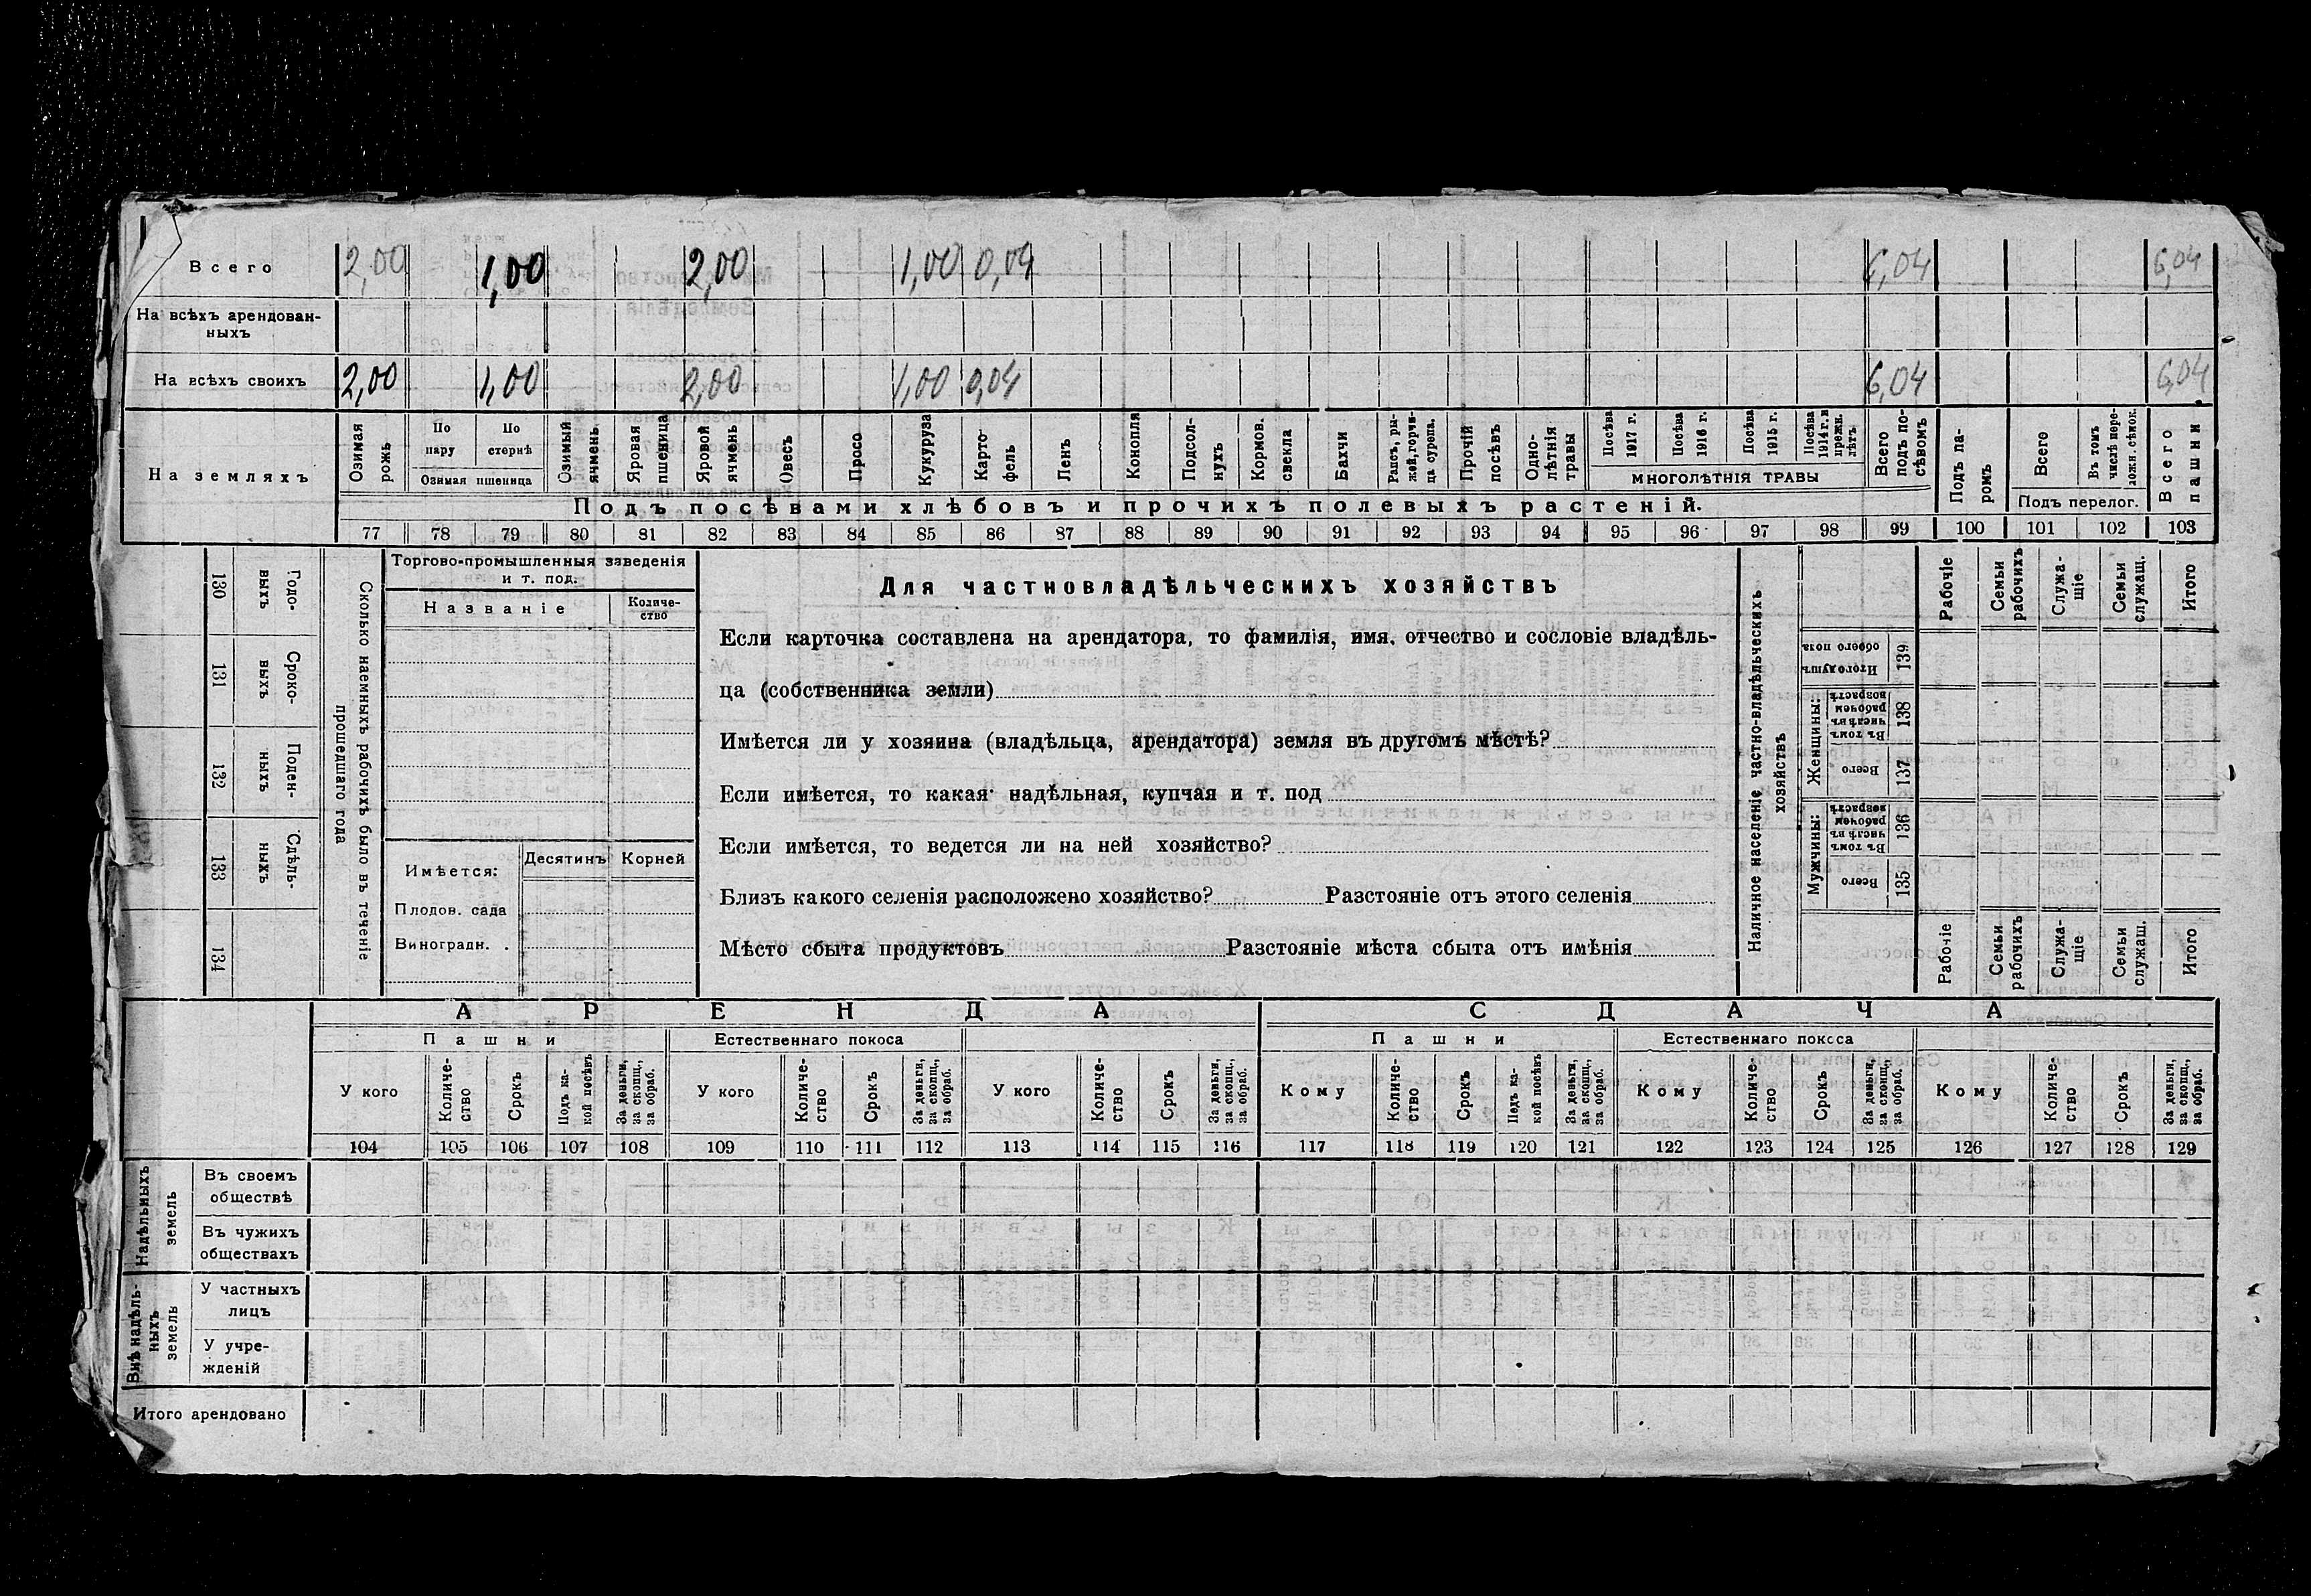 Всего 2,00 1,00 2,00 1,00 0,04 6,04 6,04
На всѣхъ арендован-
ныхъ
На всѣхъ своихъ 2,00 1,00 2,00 1,00 0,04 6,04 6,04
На земляхъ
Озимая рожь
По пару
По стернѣ
Озимая пшеница
Озимый ячмень
Яровая пшеница
Яровой ячмень
Овесъ
Просо
Кукуруза
Карто-
фель
Ленъ
Конопля
Подсол-
нухъ
Кормов. свекла
Бахчи
Рапсъ, ры-
жей, горчи-
ца сурепа.
Прочій посѣвъ
Одно-
лѣтнія
травы
Посѣва 1917 г.
Посѣва 1916 г.
Посѣва 1915 г.
Посѣва 1914 г. и прежн. лѣтъ
МНОГОЛѢТНІЯ ТРАВЫ
Всего подъ по-
сѣвомъ
Подъ па-
ромъ
Всего
Въ томъ числѣ пере-
ложн. сѣнок.
Подъ перелог.
Всего пашни
Подъ посѣвами хлѣбовъ и прочихъ полевыхъ растеній.
77 78 79 80 81 82 83 84 85 86 87 88 89 90 91 92 93 94 95 96 97 98 99 100 101 102 103
130 Годо-
выхъ
131 Сроко-
выхъ
132 Поден-
ныхъ
133 Сдѣль-
ныхъ
134
Сколько наемныхъ рабочихъ было въ теченіе
прошедшаго года
Торгово-промышленныя заведенія
и т. под.
Названіе
Количе-
ство
Имѣется:
Десятинъ Корней
Плодов. сада
Виноградн. .
Для частновладѣльческихъ хозяйствъ
Если карточка составлена на арендатора, то фамилія, имя, отчество и сословіе владѣль-
ца (собственника земли)
Имѣется ли у хозяина (владѣльца, арендатора) земля въ другомъ мѣстѣ?
Если имѣется, то какая надѣльная, купчая и т. под
Если имѣется, то ведется ли на ней хозяйство?
Близъ какого селенія расположено хозяйство? Разстояніе отъ этого селенія
Мѣсто сбыта продуктовъ Разстояніе мѣста сбыта отъ имѣнія
Наличное населеніе частно-владѣльческихъ
хозяйствъ
Рабочіе
Семьи рабочихъ
Служа-
щіе
Семьи служащ.
Итого
Итого душъ
обоего пола
139
Женщины:
Въ томъ числѣ въ рабочемъ возрастѣ
138
Всего
137
Мужчины:
Въ томъ числѣ въ рабочемъ возрастѣ
136
Всего
135
Рабочіе
Семьи рабочихъ
Служа-
щіе
Семьи служащ.
Итого
АРЕНДА СДАЧА
Пашни Естественнаго покоса Пашни Естественнаго покоса
У кого
Количе-
ство
Срокъ
Подъ ка-
кой посѣвъ
За деньги, за скопщ., за обраб.
У кого
Количе-
ство
Срокъ
За деньги, за скопщ., за обраб.
У кого
Количе-
ство
Срокъ
За деньги, за скопщ., за обраб.
Кому
Количе-
ство
Срокъ
Подъ ка-
кой посѣвъ
За деньги, за скопщ., за обраб.
Кому
Количе-
ство
Срокъ
За деньги, за скопщ., за обраб.
Кому
Количе-
ство
Срокъ
За деньги, за скопщ., за обраб.
104 105 106 107 108 109 110 111 112 113 114 115 116 117 118 119 120 121 122 123 124 125 126 127 128 129
Надѣльныхъ
земель
Въ своемъ
обществѣ
Въ чужихъ
обществахъ
Внѣ надѣль-
ныхъ
земель
У частныхъ
лицъ
У учре-
жденій
Итого арендовано